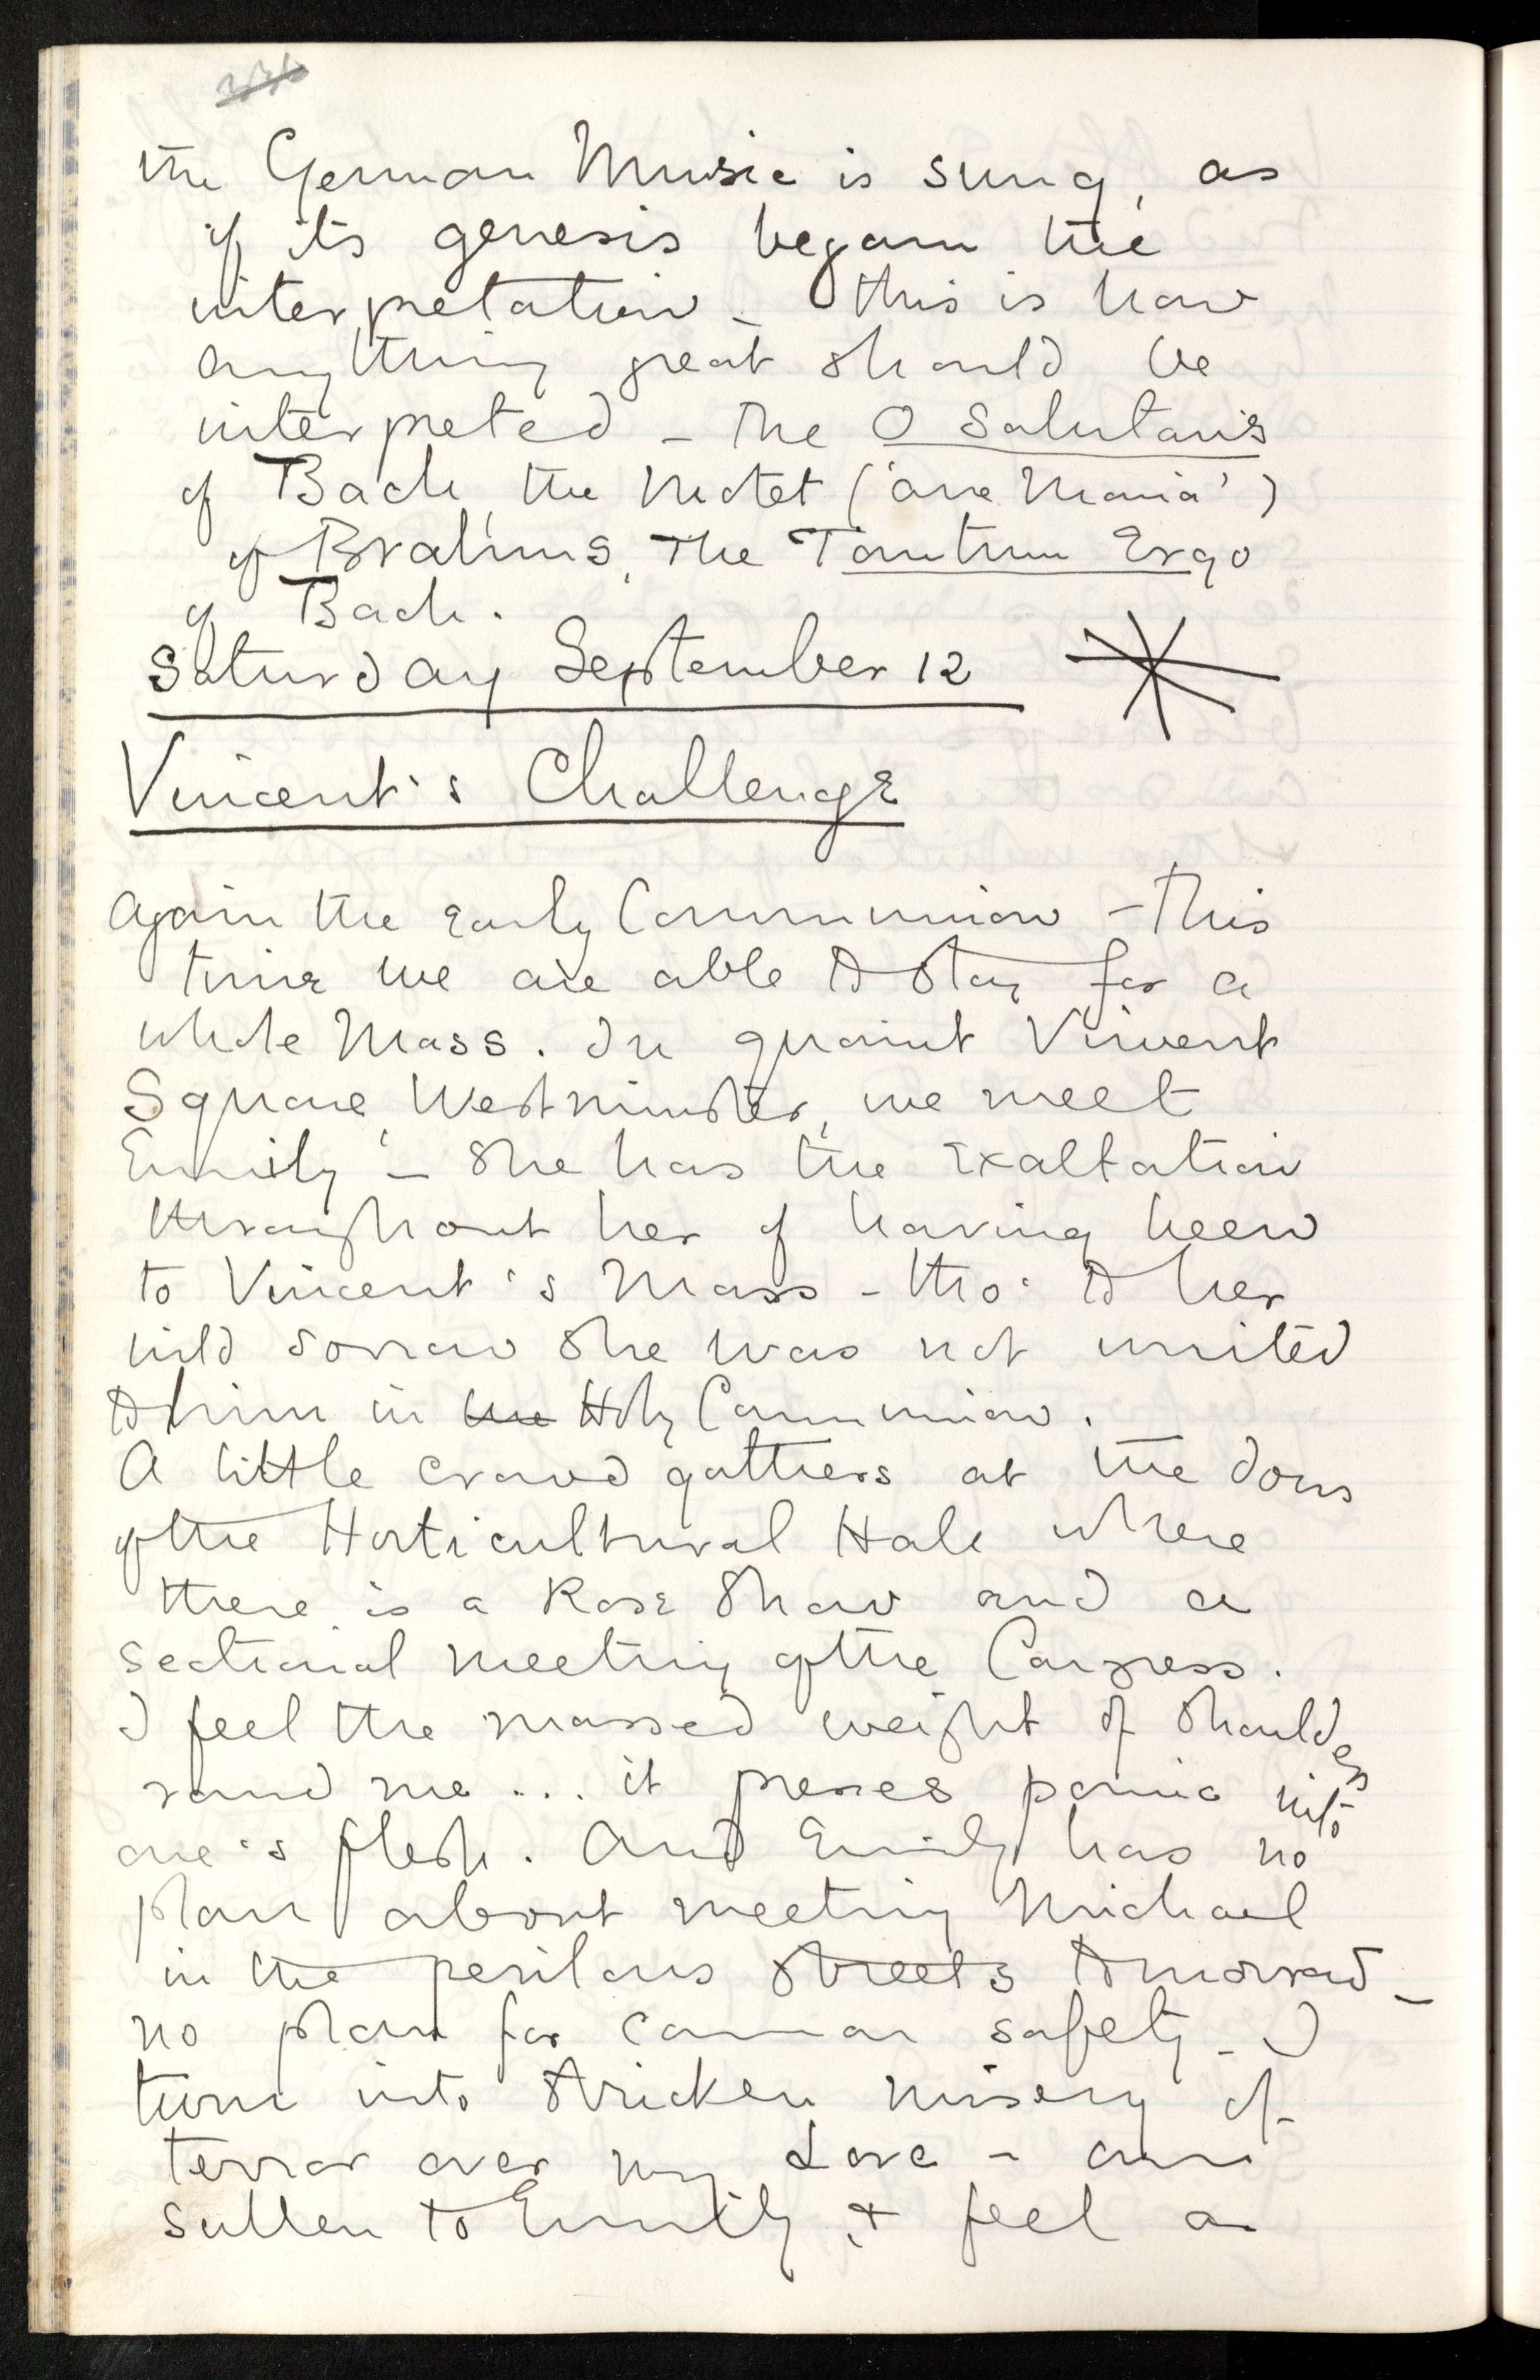 the German Music is sung, as
if its genesis began the
interpretation – this is how
anything great should be
interpreted – The O Salutaris
of Bach, the Motet ('ave Maria')
of Brahms, The Tantum Ergo
of Bach.
Saturday September 12
Vincent's Challenge
Again the Early Communion – This
time we are able to stay for a
whole Mass. In quaint Vincent
Square, Westminster, we meet
Emily – She has the Exaltation
throughout her of having been
to Vincent's Mass – tho' to her
wild sorrow she was not united
to him in the Holy Communion.
A little crowd gathers at the doors
of the Horticultural Hall where
there is a Rose Show and a
sectional meeting of the Congress.
I feel the massed weight of shoulders
round me ... it presses panic into
one's flesh. And Emily has no
plan about meeting Michael
in the perilous streets tomorrow –
no plan for common safety – I
turn into stricken misery of
terror over my Love – am
sullen to Emily, & feel a